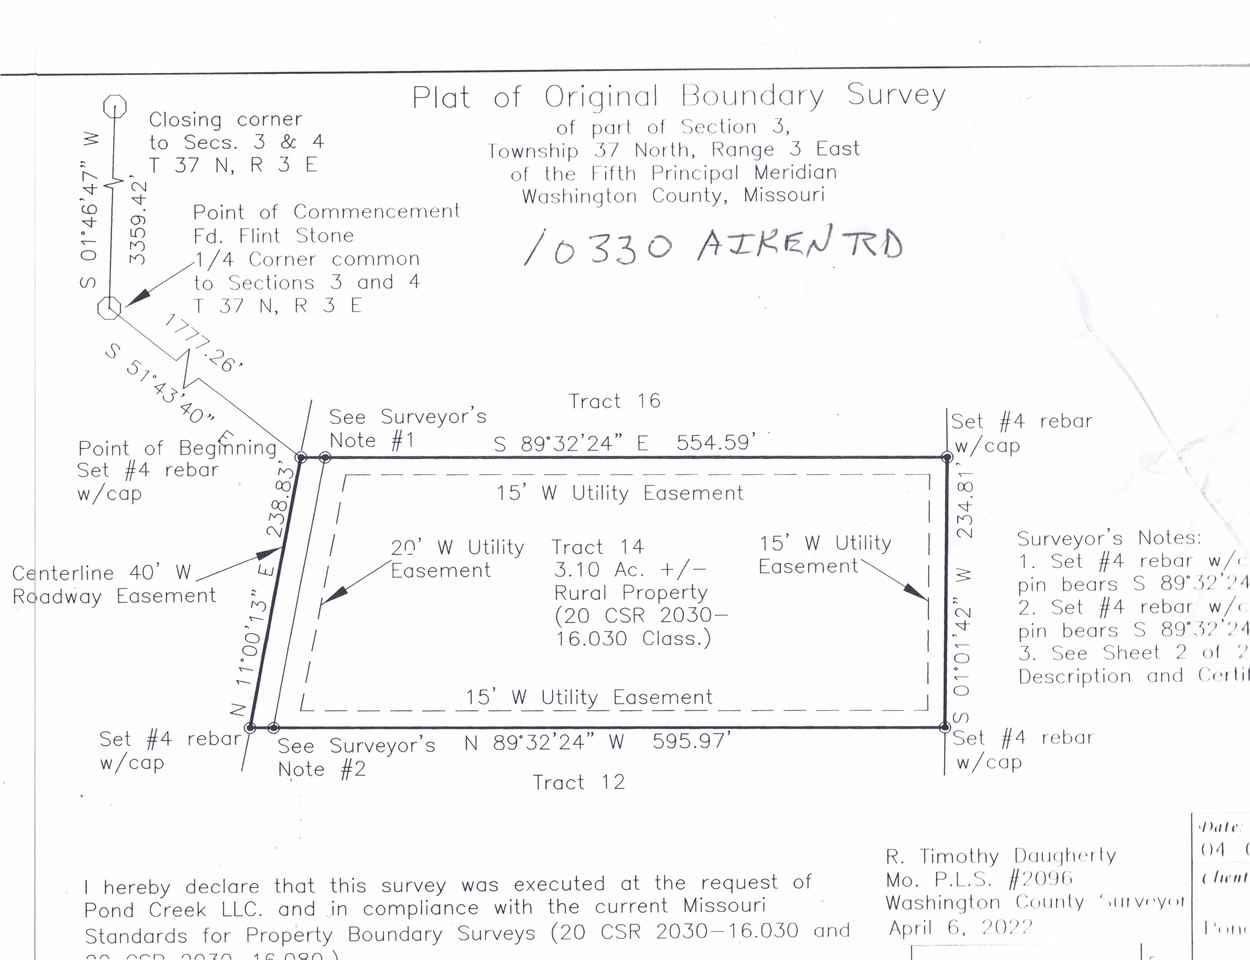 Plat of Original Boundary Survey
of part of Section 3,
Township 37 North, Range 3 East
of the Fifth Principal Meridian
Washington County, Missouri
10330 AIKEN RD
Closing corner
to Secs. 3 & 4
T 37 N, R 3 E
S 01°46'47" W
3359.42'
Point of Commencement
Fd. Flint Stone
1/4 Corner common
to Sections 3 and 4
T 37 N, R 3 E
1777.26'
S 51°43'40" E
Tract 16
See Surveyor's
Note #1
S 89°32'24" E 554.59'
Set #4 rebar
w/cap
Point of Beginning
Set #4 rebar
w/cap
N 11°00'13" E 238.83'
15' W Utility Easement
20' W Utility
Easement
Tract 14
3.10 Ac. +/-
Rural Property
(20 CSR 2030-
16.030 Class.)
15' W Utility
Easement
S 01°01'42" W 234.81'
Centerline 40' W
Roadway Easement
Surveyor's Notes:
1. Set #4 rebar w/
pin bears S 89°32'24
2. Set #4 rebar w/
pin bears S 89°32'24
3. See Sheet 2 of 2
Description and Certif
15' W Utility Easement
Set #4 rebar
w/cap
See Surveyor's
Note #2
N 89°32'24" W 595.97'
Set #4 rebar
w/cap
Tract 12
I hereby declare that this survey was executed at the request of
Pond Creek LLC. and in compliance with the current Missouri
Standards for Property Boundary Surveys (20 CSR 2030-16.030 and
R. Timothy Daugherty
Mo. P.L.S. #2096
Washington County Surveyor
April 6, 2022
Date:
04
Client